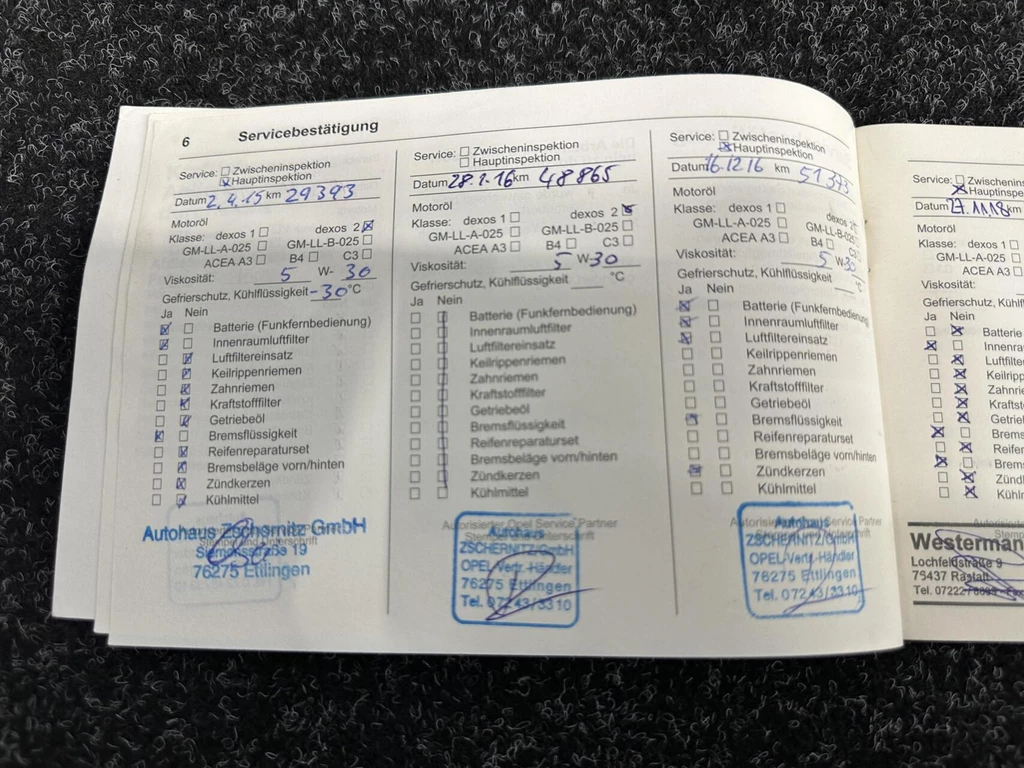 6 Servicebestätigung
Service: Zwischeninspektion
Hauptinspektion
Datum 2.4.15 km 29393
Motoröl
Klasse: dexos 1 dexos 2
GM-LL-A-025 GM-LL-B-025
ACEA A3 B4 C3
Viskosität: 5 W- 30
Gefrierschutz, Kühlflüssigkeit -30 °C
Ja Nein
Batterie (Funkfernbedienung)
Innenraumluftfilter
Luftfiltereinsatz
Keilrippenriemen
Zahnriemen
Kraftstofffilter
Getriebeöl
Bremsflüssigkeit
Reifenreparaturset
Bremsbeläge vorn/hinten
Zündkerzen
Kühlmittel
Autohaus Zschernitz GmbH
Siemensstraße 19
76275 Ettlingen
Service: Zwischeninspektion
Hauptinspektion
Datum 28.1.16 km 48865
Motoröl
Klasse: dexos 1 dexos 2
GM-LL-A-025 GM-LL-B-025
ACEA A3 B4 C3
Viskosität: 5 W-30
Gefrierschutz, Kühlflüssigkeit °C
Ja Nein
Batterie (Funkfernbedienung)
Innenraumluftfilter
Luftfiltereinsatz
Keilrippenriemen
Zahnriemen
Kraftstofffilter
Getriebeöl
Bremsflüssigkeit
Reifenreparaturset
Bremsbeläge vorn/hinten
Zündkerzen
Kühlmittel
Autorisierter Opel Service Partner
Autohaus
ZSCHERNITZ GmbH
OPEL-Vertr.-Händler
76275 Ettlingen
Tel. 07243/3310
Service: Zwischeninspektion
Hauptinspektion
Datum 16.12.16 km 51343
Motoröl
Klasse: dexos 1 dexos 2
GM-LL-A-025 GM-LL-B-025
ACEA A3 B4 C3
Viskosität: 5 W-30
Gefrierschutz, Kühlflüssigkeit °C
Ja Nein
Batterie (Funkfernbedienung)
Innenraumluftfilter
Luftfiltereinsatz
Keilrippenriemen
Zahnriemen
Kraftstofffilter
Getriebeöl
Bremsflüssigkeit
Reifenreparaturset
Bremsbeläge vorn/hinten
Zündkerzen
Kühlmittel
Autohaus
ZSCHERNITZ GmbH
OPEL-Vertr.-Händler
76275 Ettlingen
Tel. 07243/3310
Service: Zwischenin
Hauptinspe
Datum 27.11.18 km
Motoröl
Klasse: dexos 1
GM-LL-A-025
ACEA A3
Viskosität:
Gefrierschutz, Kühlflüss
Ja Nein
Batterie
Innenra
Luftfilte
Keilripp
Zahnri
Krafts
Getrie
Brems
Reifen
Brems
Zünd
Kühl
Westerman
Lochfeldstraße 9
76437 Rastatt
Tel. 07222